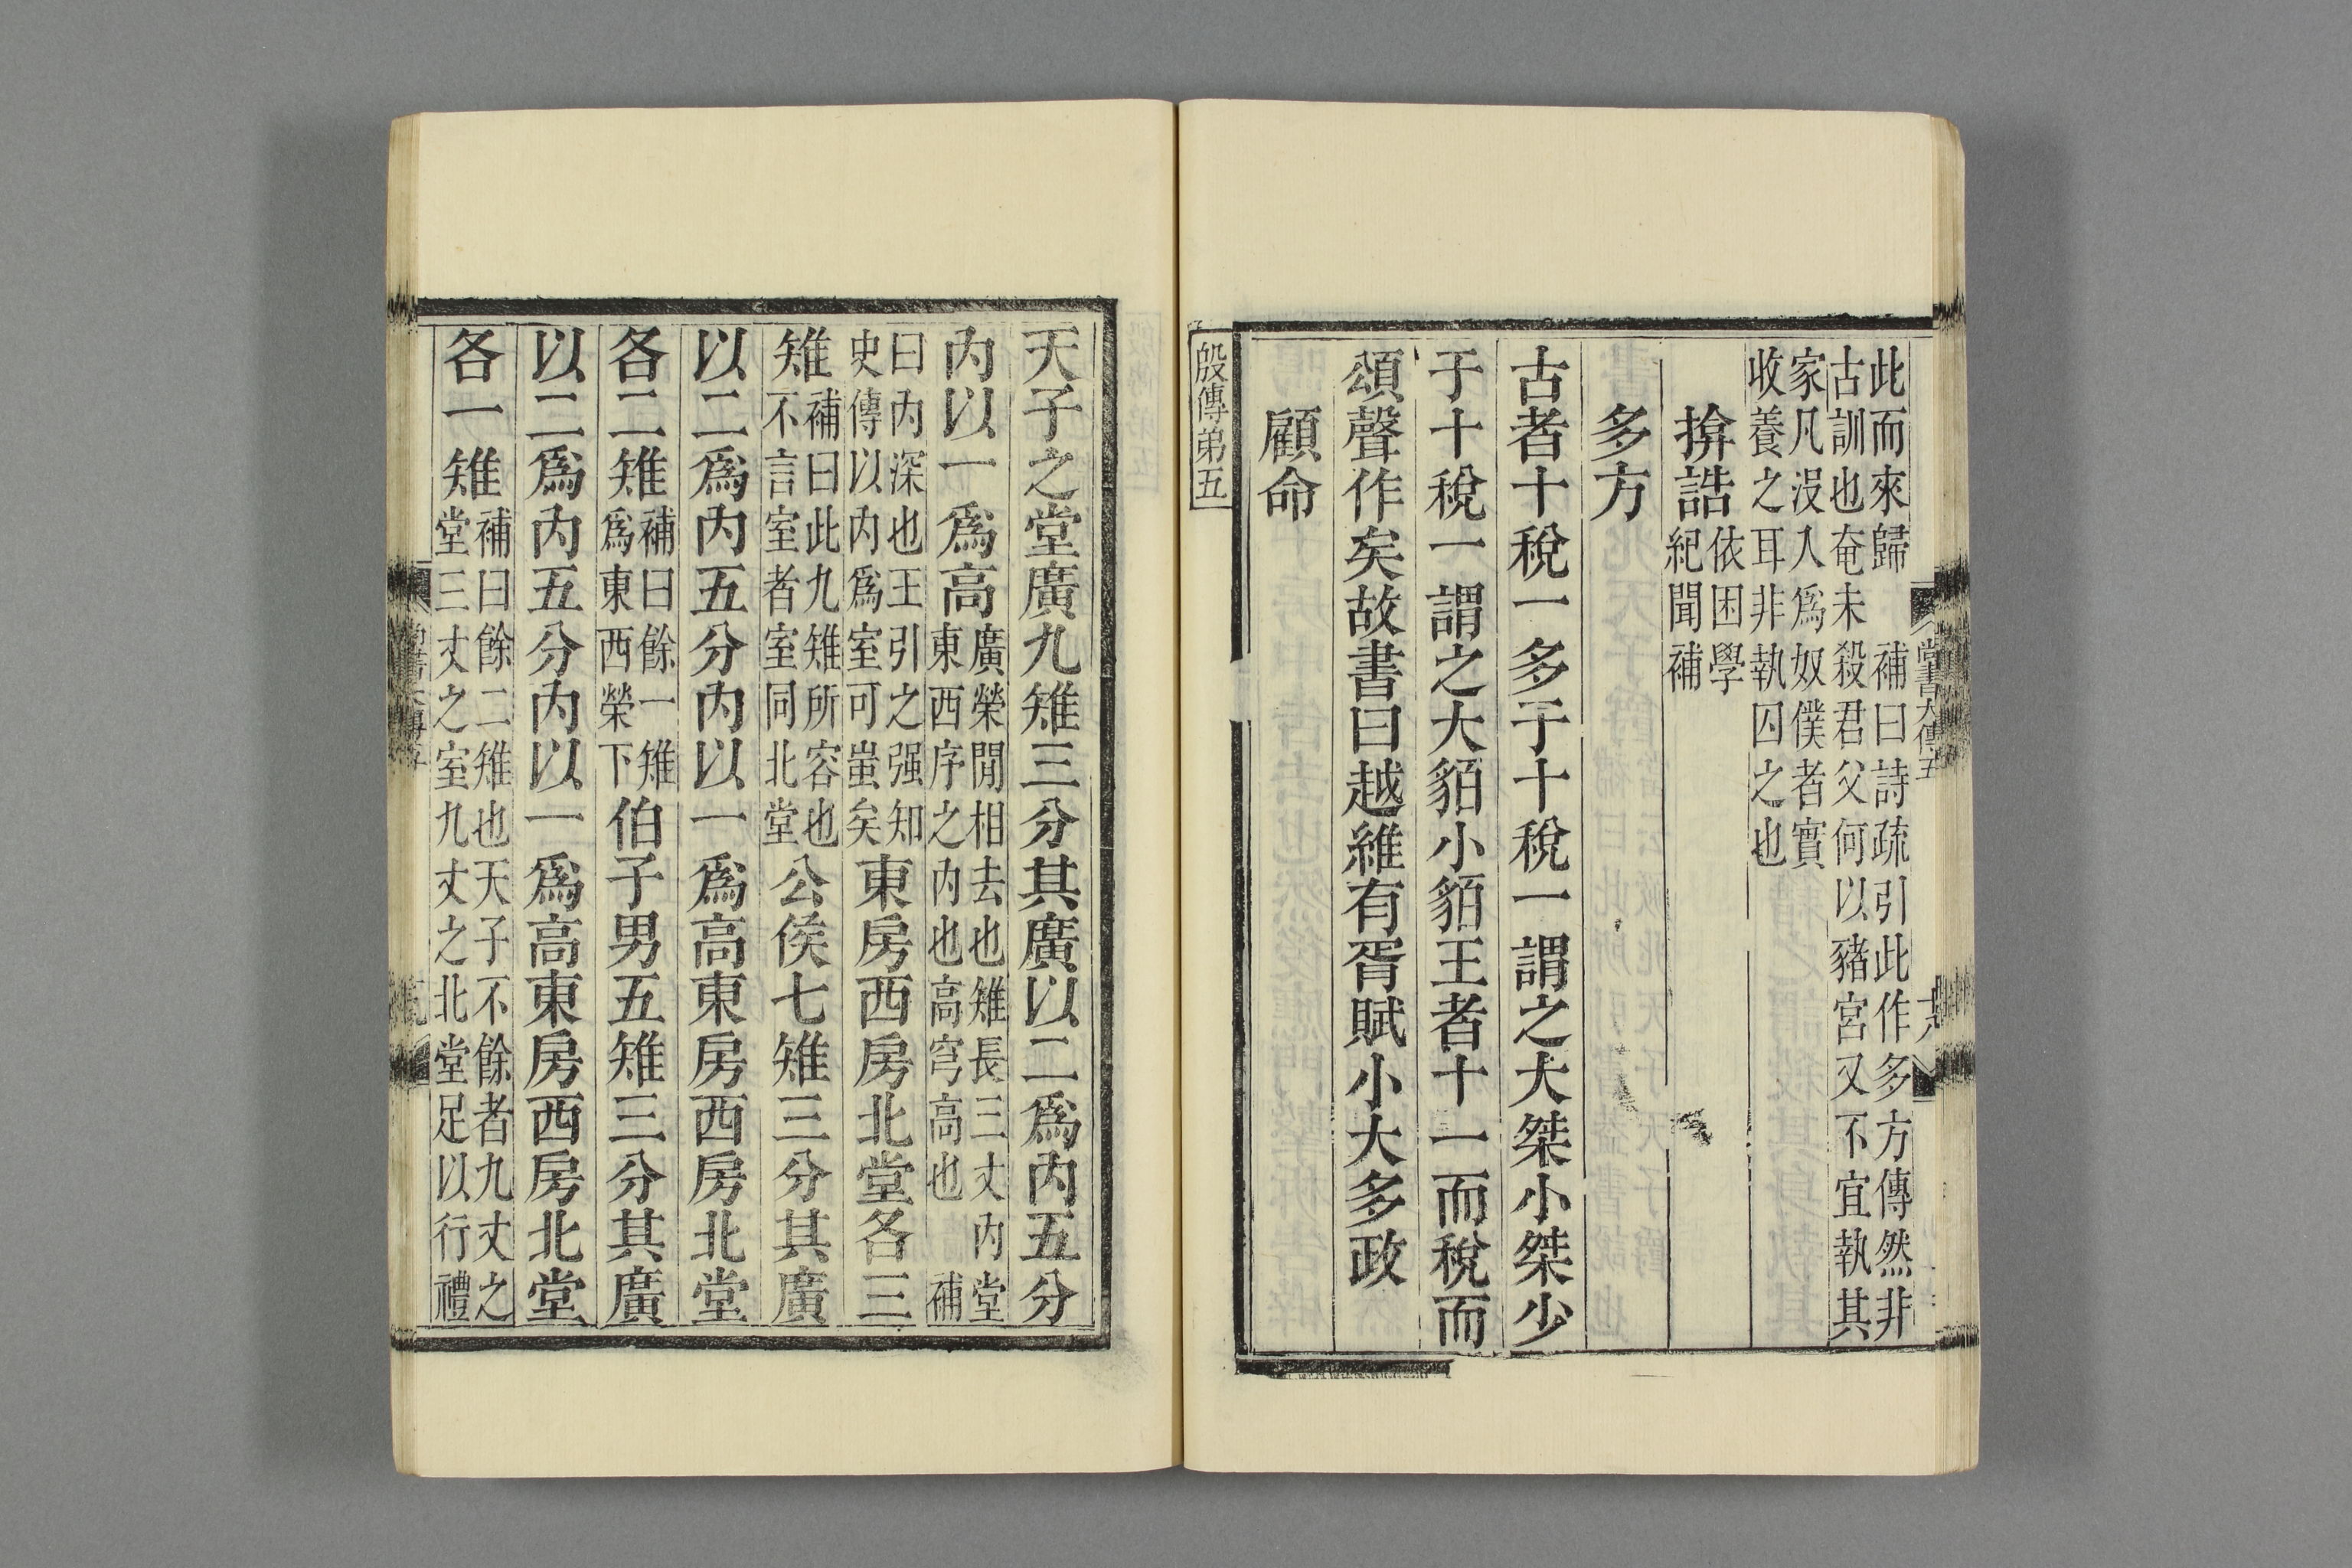 尚書大傳五
此而來歸　補曰詩疏引此作多方傳然非
古訓也奄未殺君父何以豬宮又不宜執其
家凡沒入爲奴僕者實
收養之耳非執囚之也
揜誥依困學
紀聞補
多方
古者十稅一多于十稅一謂之大桀小桀少
于十稅一謂之大貊小貊王者十一而稅而
頌聲作矣故書曰越維有胥賦小大多政
顧命
殷傳弟五
天子之堂廣九雉三分其廣以二爲內五分
內以一爲高廣榮閒相去也雉長三丈內堂
東西序之內也高穹高也　補
曰內深也王引之强知
史傳以內爲室可蚩矣東房西房北堂各三
雉補曰此九雉所容也
不言室者室同北堂公侯七雉三分其廣
以二爲內五分內以一爲高東房西房北堂
各二雉補曰餘一雉
爲東西榮下伯子男五雉三分其廣
以二爲內五分內以一爲高東房西房北堂
各一雉補曰餘二雉也天子不餘者九丈之
堂三丈之室九丈之北堂足以行禮